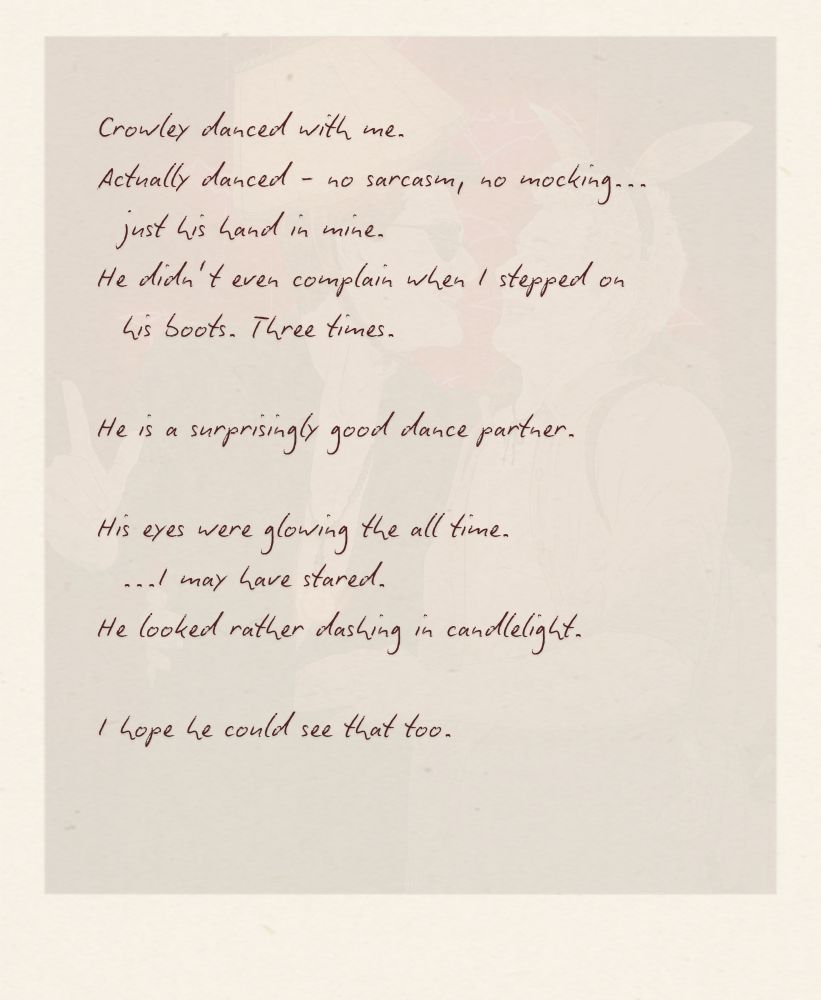 Crowley danced with me.
Actually danced - no sarcasm, no mocking...
just his hand in mine.
He didn't even complain when I stepped on
his boots. Three times.
He is a surprisingly good dance partner.
His eyes were glowing the all time.
...I may have stared.
He looked rather dashing in candlelight.
I hope he could see that too.